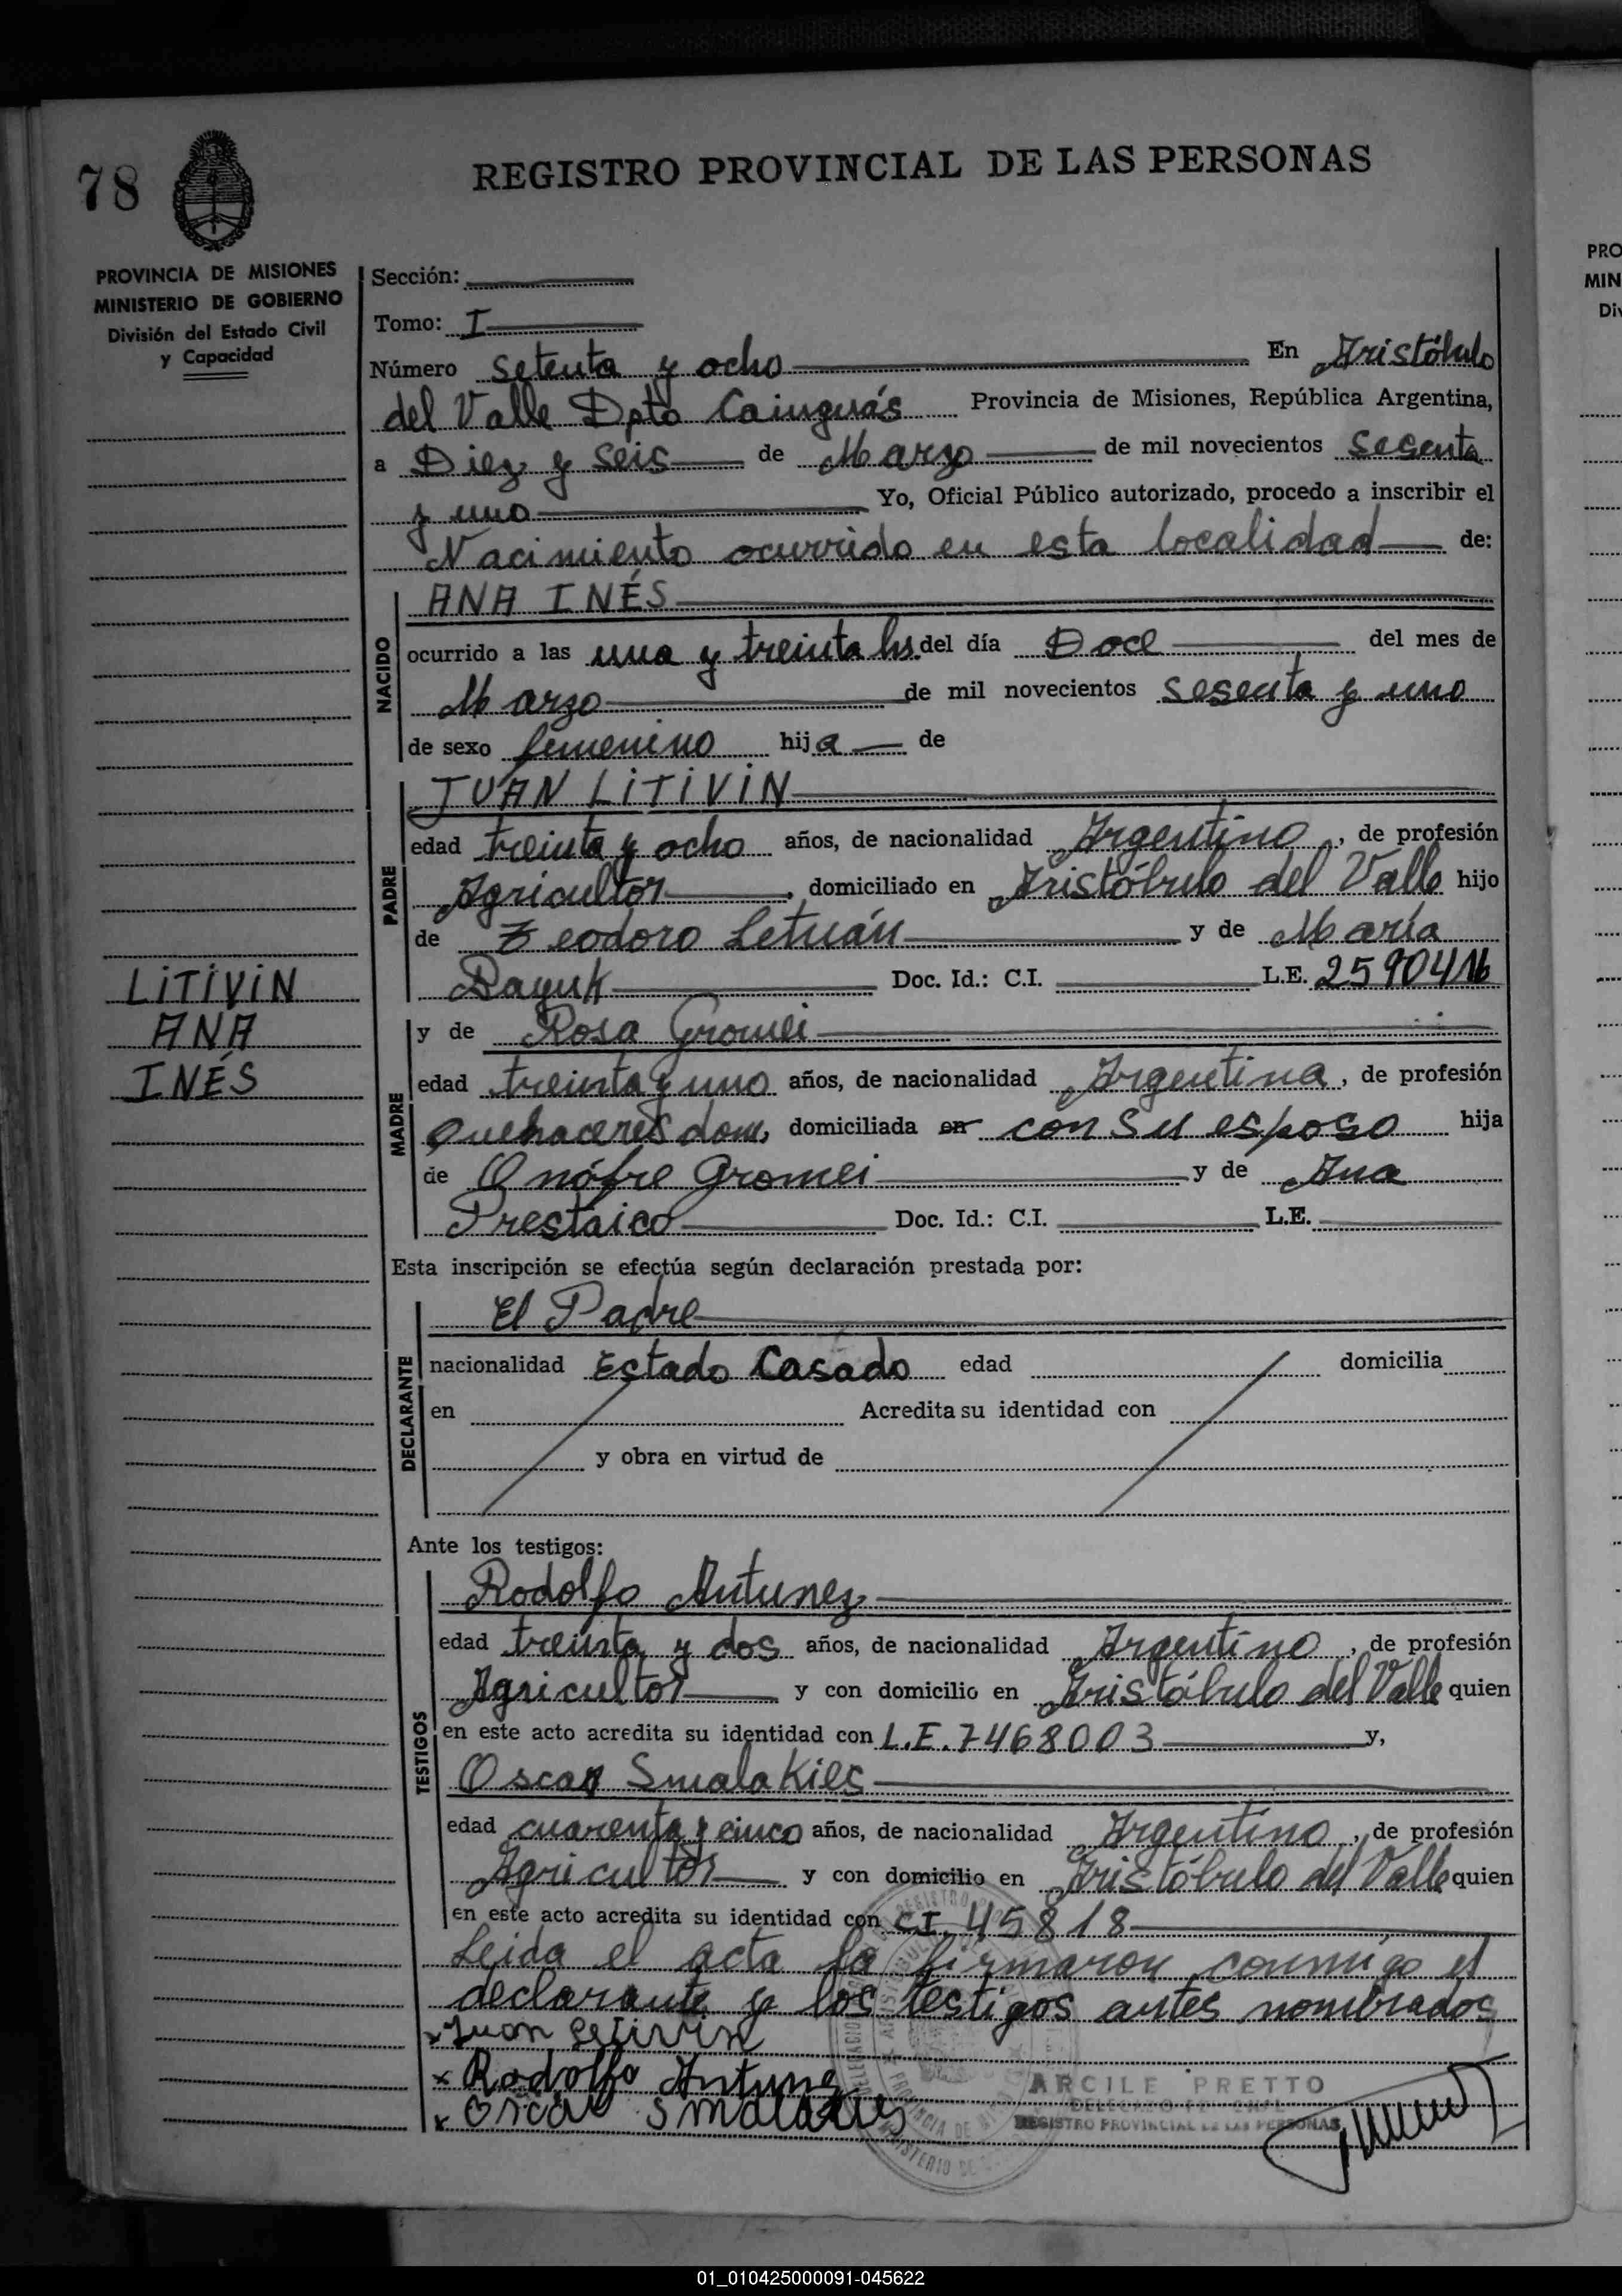 78
REGISTRO PROVINCIAL DE LAS PERSONAS
PROVINCIA DE MISIONES
MINISTERIO DE GOBIERNO
División del Estado Civil
y Capacidad
Sección:
Tomo: I
Número setenta y ocho En Aristóbulo
del Valle Dpto Cainguás Provincia de Misiones, República Argentina,
a Diez y seis de Marzo de mil novecientos sesenta
y uno Yo, Oficial Público autorizado, procedo a inscribir el
Nacimiento ocurrido en esta localidad de:
NACIDO
ANA INÉS
ocurrido a las una y treinta hs. del día Doce del mes de
Marzo de mil novecientos sesenta y uno
de sexo femenino hija de
PADRE
JUAN LITIVIN
edad treinta y ocho años, de nacionalidad Argentino, de profesión
Agricultor, domiciliado en Aristóbulo del Valle hijo
de Teodoro Letuán y de María
Doc. Id.: C.I. L.E. 2590416
LITIVIN
ANA
INÉS
MADRE
y de Rosa Gromei
edad treinta y uno años, de nacionalidad Argentina, de profesión
Quehaceres dom, domiciliada en con su esposo hija
de Onófre Gromei y de Ana
Prestaico Doc. Id.: C.I. L.E.
Esta inscripción se efectúa según declaración prestada por:
DECLARANTE
El Padre
nacionalidad Estado Casado edad domicilia
en Acredita su identidad con
y obra en virtud de
Ante los testigos:
TESTIGOS
Rodolfo Antunez
edad treinta y dos años, de nacionalidad Argentino, de profesión
Agricultor y con domicilio en Aristóbulo del Valle quien
en este acto acredita su identidad con L.E. 7468003 y,
Oscar Smalakies
edad cuarenta y cinco años, de nacionalidad Argentino, de profesión
Agricultor y con domicilio en Aristóbulo del Valle quien
en este acto acredita su identidad con C.I. 45818
Leida el acta la firmaron conmigo el
declarante y los testigos antes nombrados
x Juan
x Rodolfo Antunez
x Oscar Smalakies
ARCILE PRETTO
REGISTRO PROVINCIAL DE LAS PERSONAS
PRO
MIN
Div
01_010425000091-045622